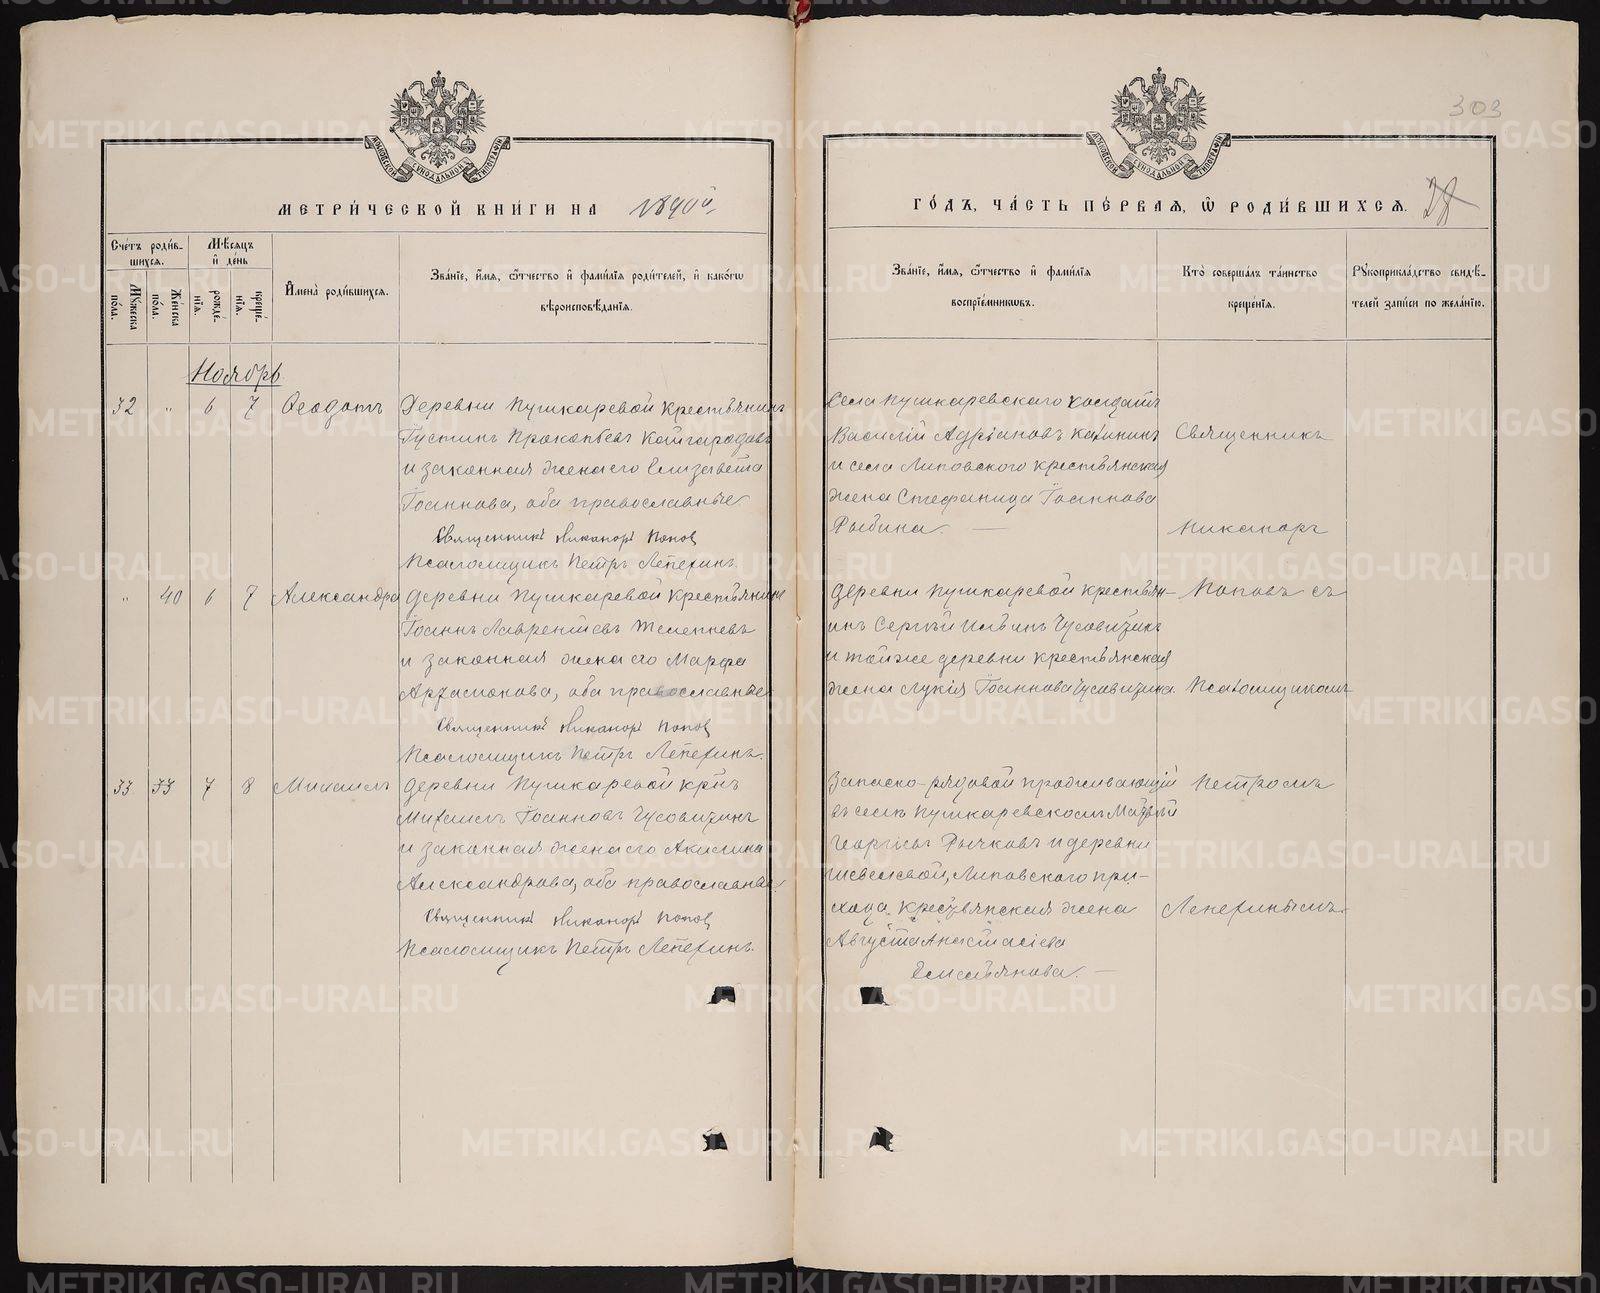 303
МОСКОВСКОЙ СѴНОДАЛЬНОЙ ТИПОГРАФІИ
МОСКОВСКОЙ СѴНОДАЛЬНОЙ ТИПОГРАФІИ
МЕТРИ́ЧЕСКОЙ КНИ́ГИ НА 1890й
ГО́ДЪ, ЧА́СТЬ ПЕ́РВАЯ, Ѿ РОДИ́ВШИХСЯ. 28
Сче́тъ роди́в-
шихся.
Мꙋ́жеска
по́ла.
Же́нска
по́ла.
Мѣ́сяцъ
и҆ де́нь
рожде́-
нїя.
креще́-
нїя.
И҆мена̀ роди́вшихся.
Зва́нїе, и҆́мя, ѻ҆́тчество и҆ фами́лїя роди́телей, и҆ како́гѡ
вѣроисповѣ́данїя.
Зва́нїе, и҆́мя, ѻ҆́тчество и҆ фами́лїя
воспрїе́мникѡвъ.
Кто̀ соверша́лъ та́инство
креще́нїя.
Рꙋкоприкла́дство свидѣ́-
телей за́писи по жела́нїю.
Ноябрь
32 " 6 7 Ѳеодотъ
Деревни Пушкаревой крестьянинъ
Густинъ Прокопьевъ Кайгородовъ
и законная жена его Елизавета
Іоаннова, оба православные
Священникъ Никаноръ Попов
Псаломщикъ Петръ Лепехинъ.
Села Пушкаревского солдатъ
Василій Адріановъ Калининъ
и села Липовского крестьянская
жена Стефанида Іоаннова
Рыбина.
" 40 6 7 Александра
Деревни Пушкаревой крестьянинъ
Іоаннъ Лаврентіевъ
и законная жена его Марфа
оба православные
Священникъ Никаноръ Попов
Псаломщикъ Петръ Лепехинъ.
Деревни Пушкаревой крестьян-
инъ Сергѣй Ильинъ Чусовитинъ
и той же деревни крестьянская
жена Лукія Іоаннова Чусовитина
33 33 7 8 Михаилъ
Деревни Пушкаревой крнъ
Михаилъ Іоанновъ Чусовитинъ
и законная жена его Акилина
Александрова, оба православные
Священникъ Никаноръ Попов
Псаломщикъ Петръ Лепехинъ.
Запасно-рядовой проживающій
въ селѣ Пушкаревскомъ Матвѣй
Георгіевъ Рычковъ и деревни
Шевелевой, Липовского при-
хода, крестьянская жена
Августа Анастасіева
Емельянова.
Священникъ
Никаноръ
Поповъ съ
Псаломщикомъ
Петромъ
Лепехинымъ.
METRIKI.GASO-URAL.RU